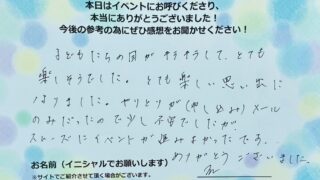 本日はイベントにお呼びくださり、
本当にありがとうございました！
今後の参考の為にぜひ感想をお聞かせください！
子どもたちの目がキラキラして、とても
楽しそうでした。とても楽しい思い出に
なりました。やりとりが(申し込み)メール
のみだったので少し不安でしたが、
スムーズにイベントが進みよかったです。
ありがとうございました。
お名前（イニシャルでお願いします）
※サイトでご紹介させて頂く場合がございます。